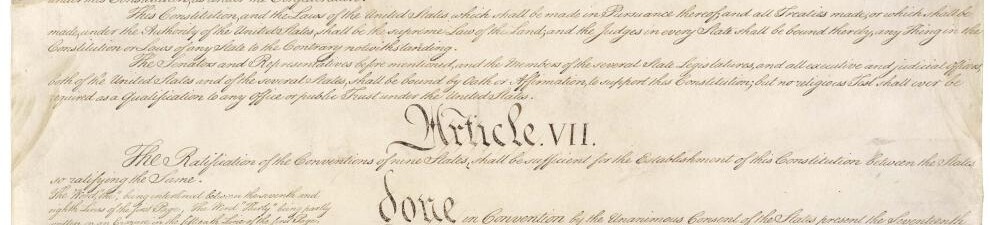 This Constitution, and the Laws of the United States which shall be made in Pursuance thereof; and all Treaties made, or which shall be
made, under the Authority of the United States, shall be the supreme Law of the Land; and the Judges in every State shall be bound thereby, any Thing in the
Constitution or Laws of any State to the Contrary notwithstanding.
The Senators and Representatives before mentioned, and the Members of the several State Legislatures, and all executive and judicial Officers,
both of the United States and of the several States, shall be bound by Oath or Affirmation, to support this Constitution; but no religious Test shall ever be
required as a Qualification to any Office or public Trust under the United States.
Article. VII.
The Ratification of the Conventions of nine States, shall be sufficient for the Establishment of this Constitution between the States
so ratifying the Same.
The Word, "the," being interlined between the seventh and
eighth Lines of the first Page, The Word "Thirty" being partly
written on an Erazure in the fifteenth Line of the first Page,
done in Convention by the Unanimous Consent of the States present the Seventeenth